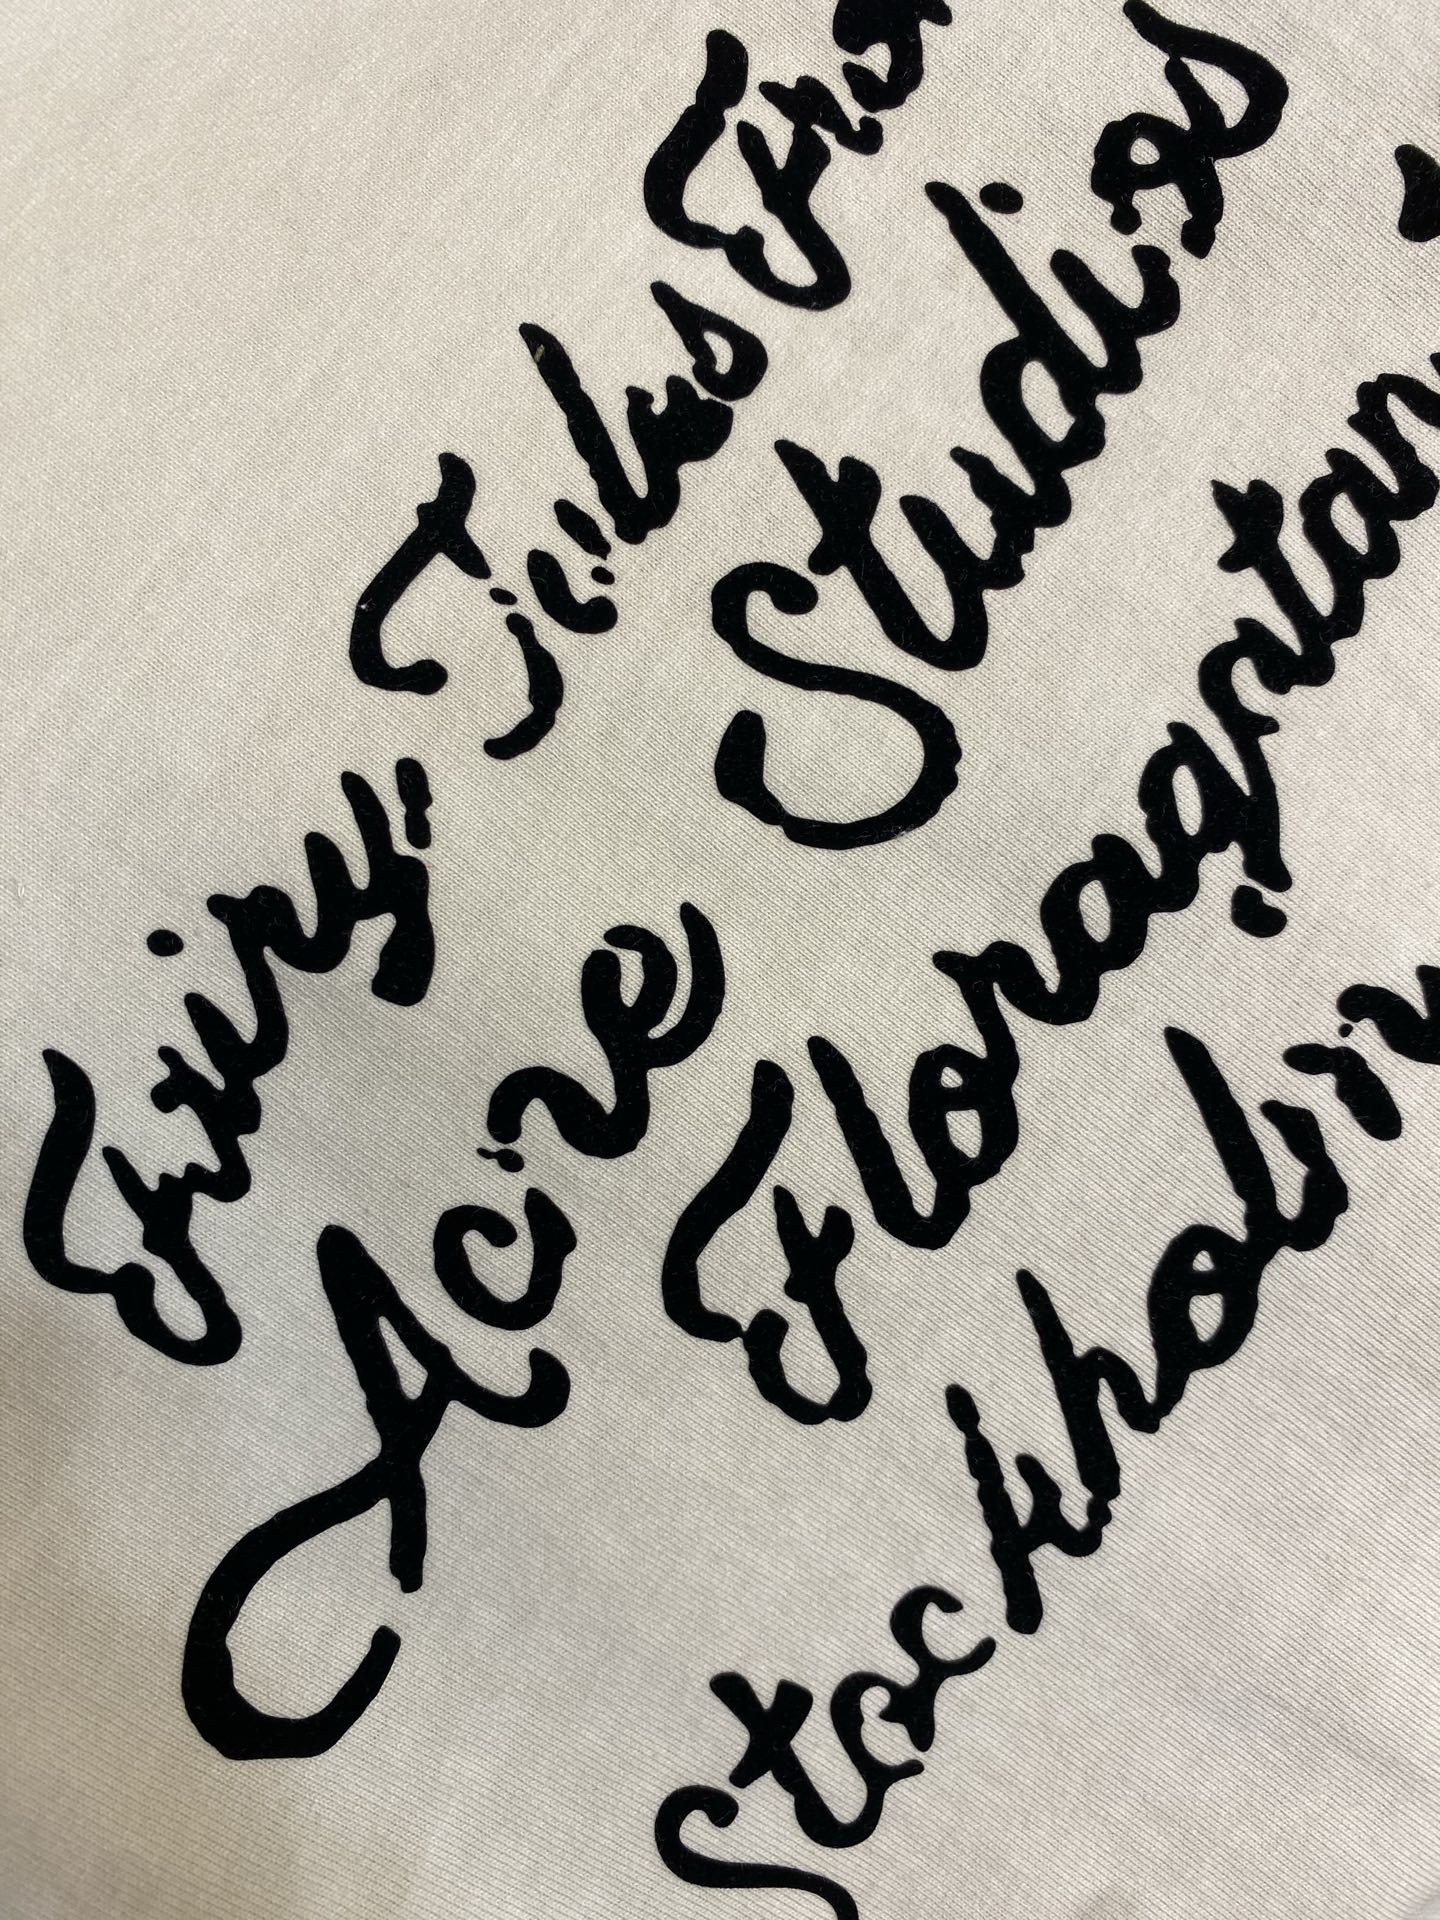 Fairy Tales Fro
Acne Studios
Floragatan
Stockholm